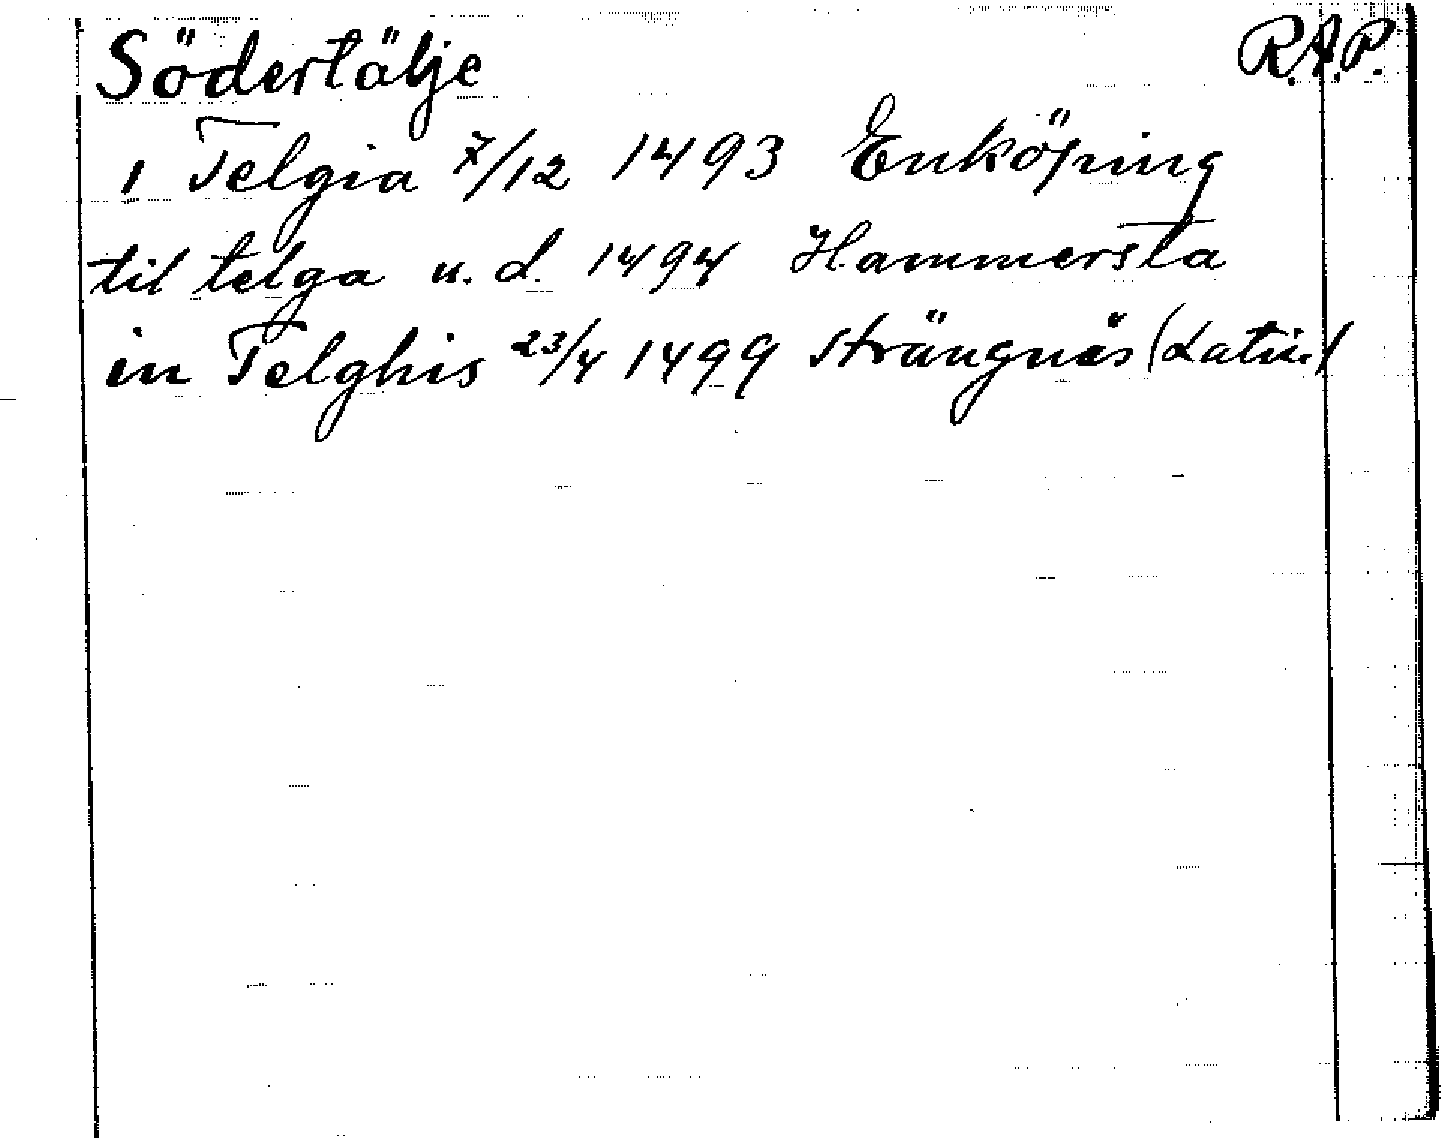 Södertälje R.A.P.
i Telgia 7/12 1493 Enköping
til telga u.d. 1494 Hammersta
in Telghis 23/4 1499 Strängnäs (Latin)